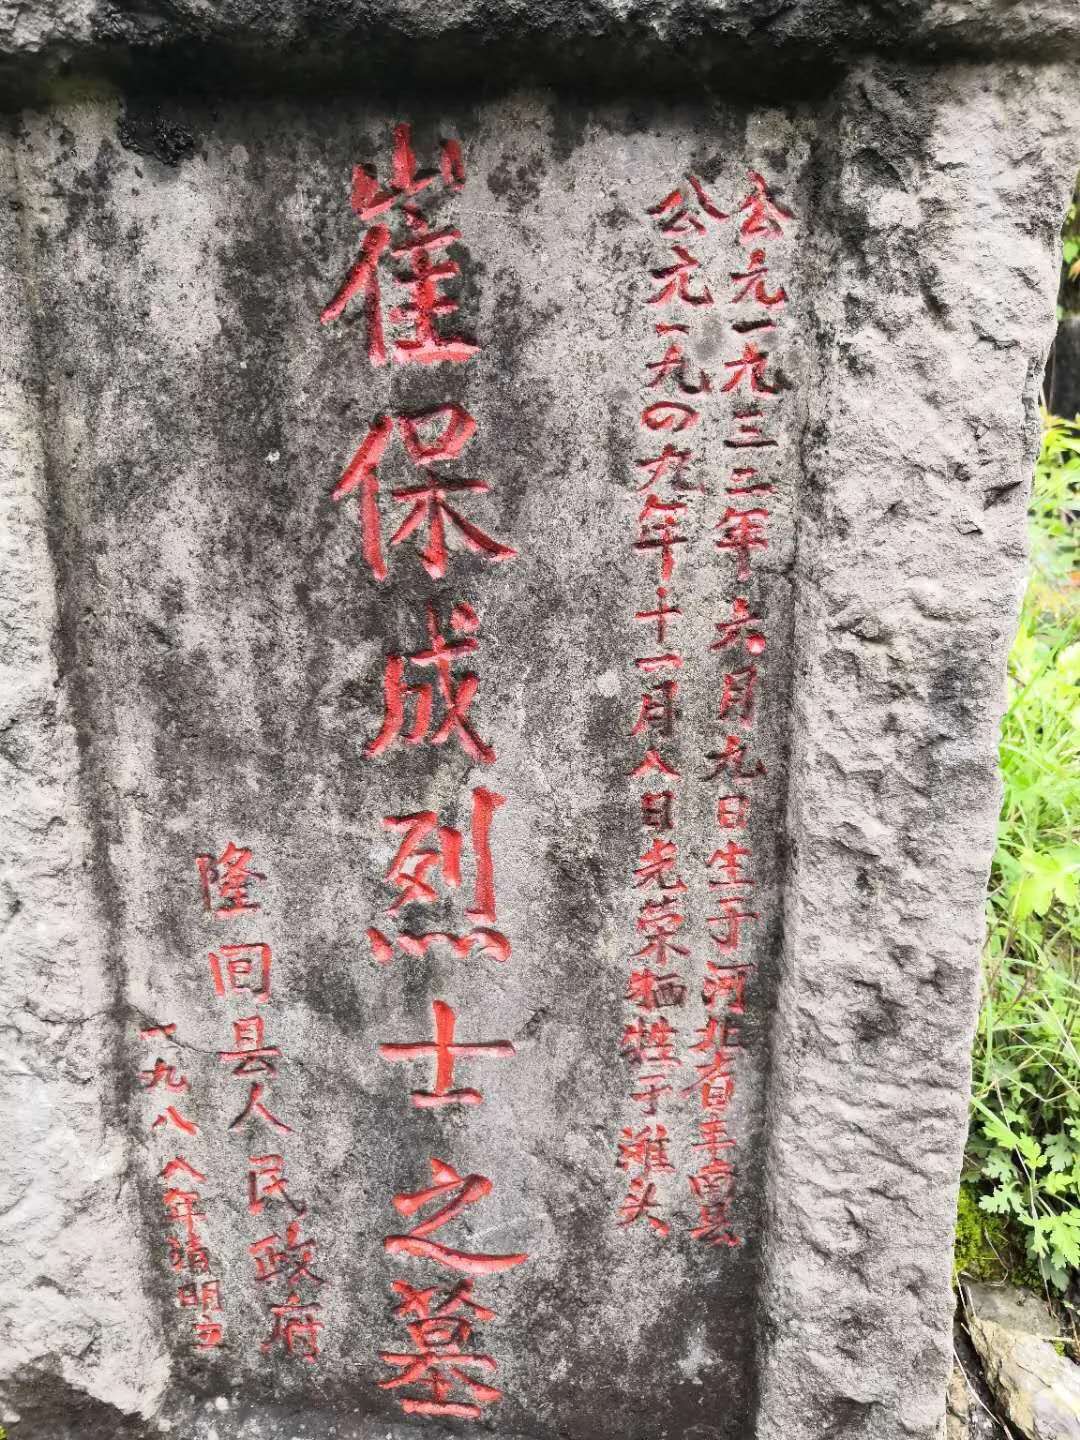 公元一九三二年六月九日生于河北省平南县
公元一九四九年十一月八日光荣牺牲于滩头
崔保成烈士之墓
隆回县人民政府
一九八八年清明立